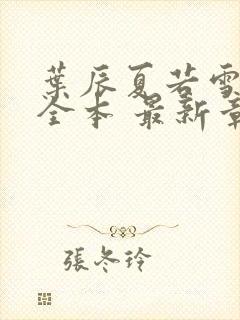 葉辰夏若雪
全本 最新章
張冬玲